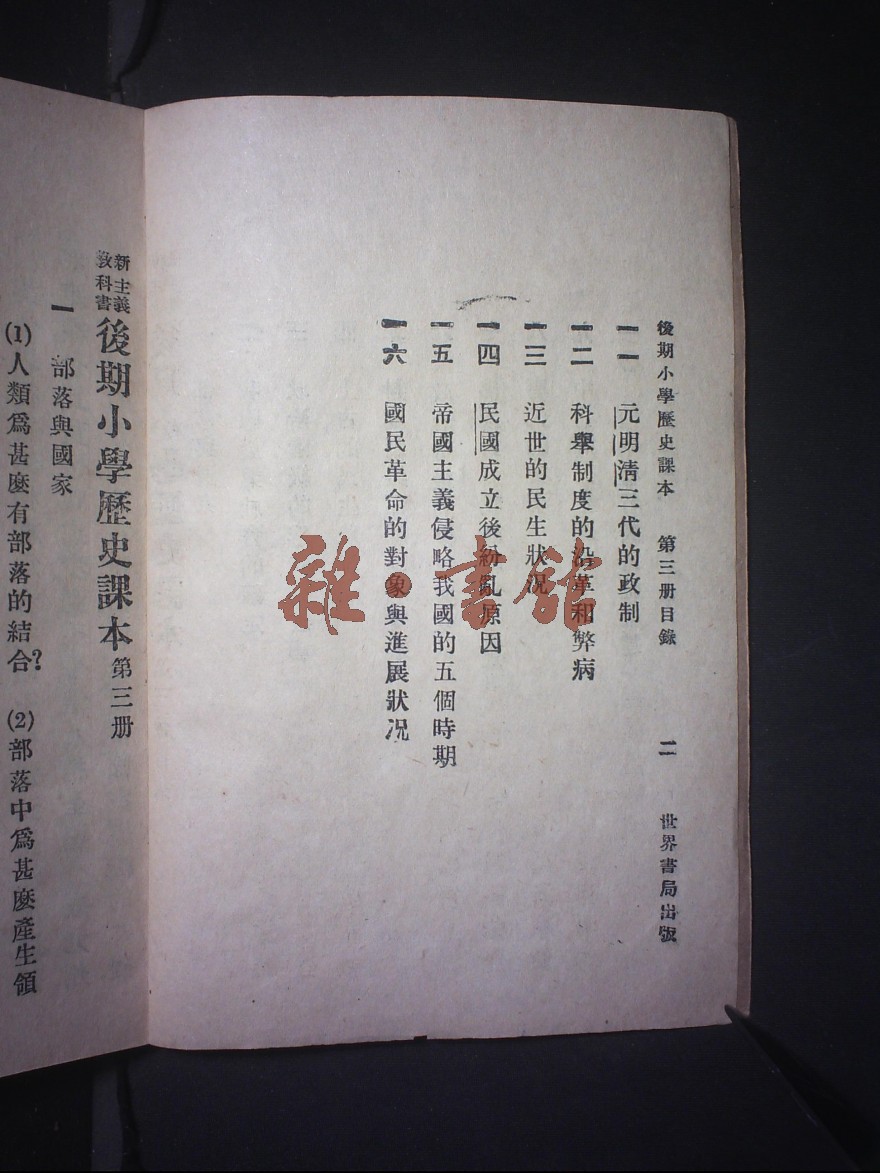 後期小學歷史課本 第三册目錄 二 世界書局出版
一一 元明清三代的政制
一二 科舉制度的沿革和弊病
一三 近世的民生狀况
一四 民國成立後紛亂原因
一五 帝國主義侵略我國的五個時期
一六 國民革命的對象與進展狀况
新主義
教科書
後期小學歷史課本 第三册
一 部落與國家
(1)人類爲甚麽有部落的結合? (2)部落中爲甚麽產生領
雜·書館